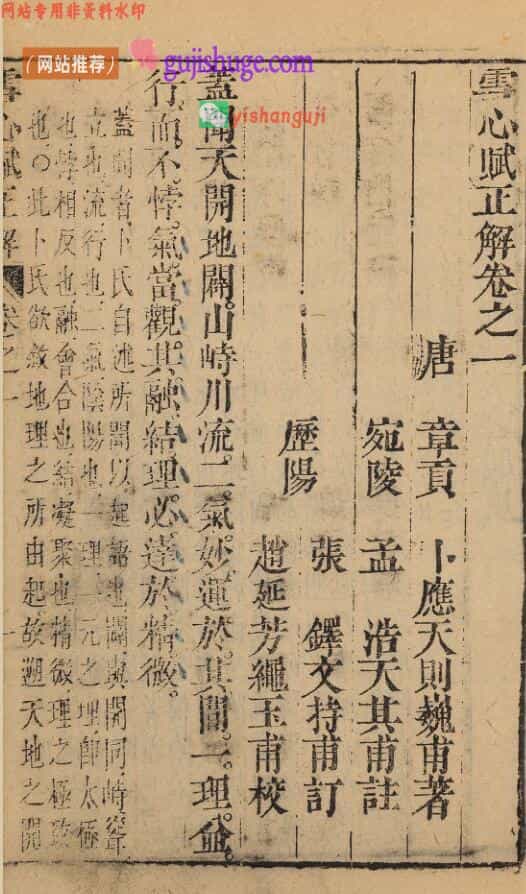 网站专用非资料水印
（网站推荐）
gujishuge.com
yishanguji
雪心賦正解卷之一
唐 章貢 卜應天則巍甫著
宛陵 孟 浩天其甫註
張 鐸文持甫訂
歷陽
趙延芳繩玉甫校
蓋聞天開地闢。山峙川流。二氣。妙運於。其間。一。理。僉。
行。而。不。悖。氣當。觀其。融結。理必達於。精微。
蓋聞者卜氏自述所聞以起語也闢與開同峙聳
立也流行也二氣陰陽也一理一元之理即太極
也悖相反也融會合也結凝聚也精微理之極致
也○此卜氏欲敘地理之所由起故遡天地之開
雪心賦正解 卷之一 一